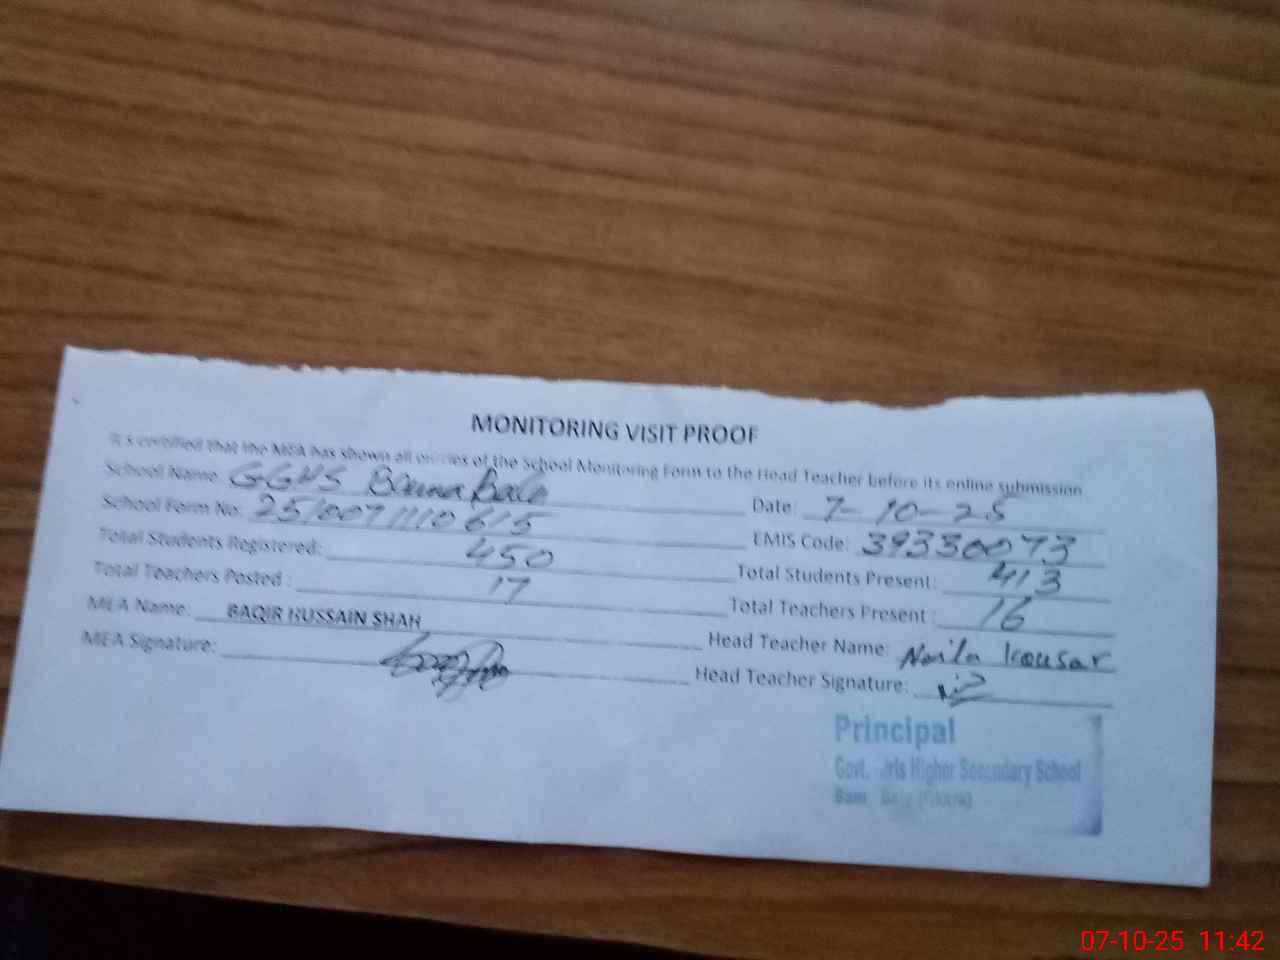 MONITORING VISIT PROOF
It is certified that the MEA has shown all entries of the School Monitoring Form to the Head Teacher before its online submission
School Name: GGHS Banna Bala Date: 7-10-25
School Form No: 2510071110615 EMIS Code: 39330073
Total Students Registered: 450 Total Students Present: 413
Total Teachers Posted : 17 Total Teachers Present : 16
MEA Name: BAQIR HUSSAIN SHAH Head Teacher Name: Naila Kousar
MEA Signature: Head Teacher Signature:
Principal
Govt. Higher Secondary School
07-10-25 11:42